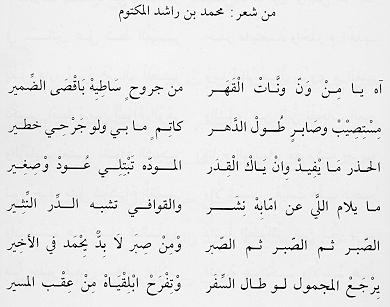 من شعر : محمد بن راشد المكتوم
آه يـا مِـنْ وَنّ ونَّـاتْ الْقَهَـر من جروحٍ سَاطِيِهْ بَاقْصَى الضِّمير
مِسْتِصِيْبْ وصَابرٍ طُـولْ الدَّهـر كاتِمٍ ما بي ولو جَرْحِـي خطير
الحذر مَا يْفيـدْ وِانْ يَـاكْ الْقِـدَر المـودّه تَبْتِلِـي عُـودْ وْصِغِير
ما يلام اللّي عن امّابِهْ نِشَـر والقوافـي تشبه الـدِّر النِّثِير
الصّبر ثـم الصّبر ثـم الصّبر ومِنْ صِبَر لَا بِدّْ يِحْمَد في الأخِير
يِرْجَـعْ المجمول لـو طال السِّفَر وْتِفْرَحْ ابْلِقْيَاهْ مِنْ عِقْـب المسير